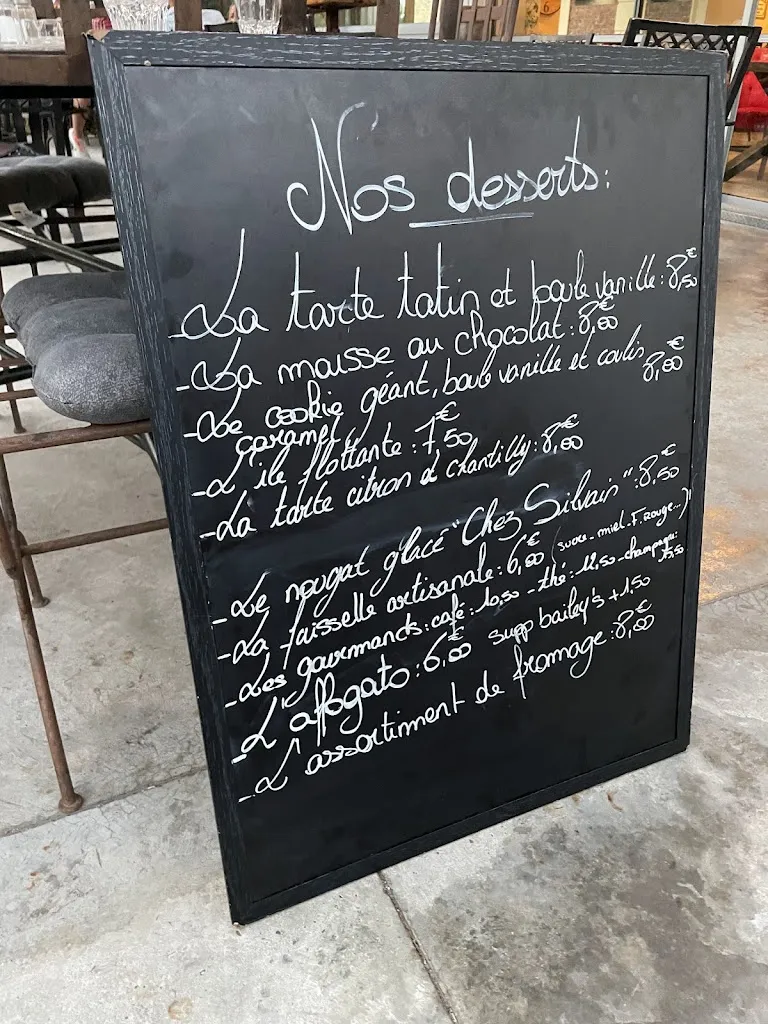 Nos desserts:
-La tarte tatin et boule vanille: 8,50€
-La mousse au chocolat: 8,00€
-Le cookie géant, boule vanille et coulis
caramel 8,00€
-L'île flottante: 7,50€
-La tarte citron et chantilly: 8,00€
-Le nougat glacé "Chez Silvain": 8,50€
-La faisselle artisanale: 6,00€ (sucre-miel-F.Rouge...)
-Les gourmands: café: 10,50-thé: 12,50-champagne: 15,50
-L'affogato: 6,00€ supp bailey's +1,50
-L'assortiment de fromage: 8,00€